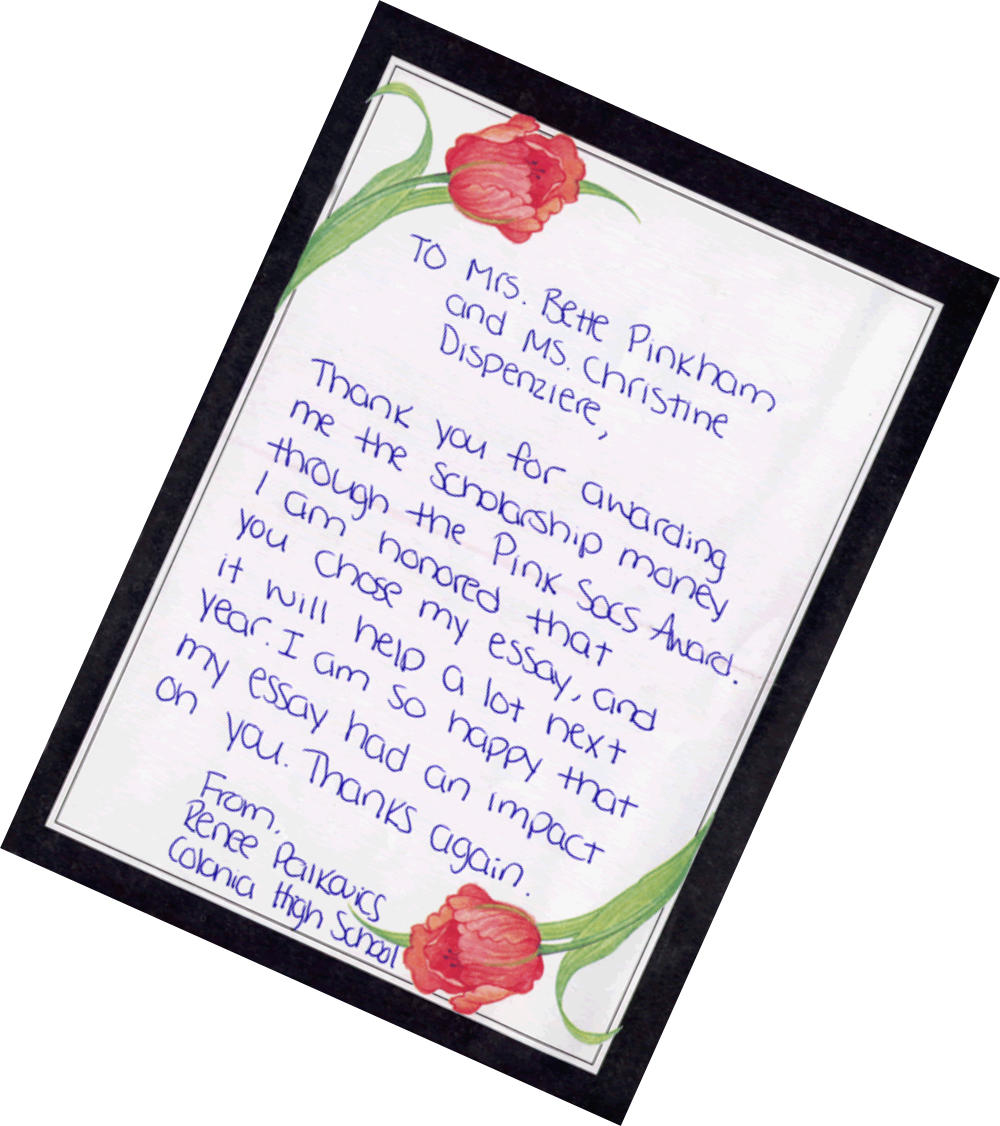 To Mrs. Bette Pinkham
and Ms. Christine
Dispenziere,
Thank you for awarding
me the scholarship money
through the Pink Socs Award.
I am honored that
you chose my essay, and
it will help a lot next
year. I am so happy that
my essay had an impact
on you. Thanks again.
From,
Renee Palkovics
Colonia High School